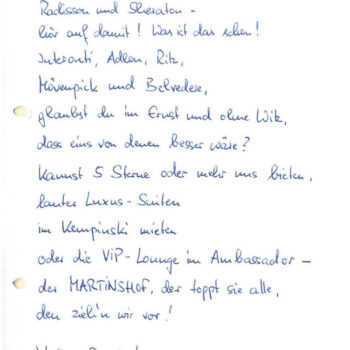 Radisson und Sheraton -
hör auf damit! Was ist das schon!
Interconti, Adlon, Ritz,
Mövenpick und Belvedere,
glaubst du im Ernst und ohne Witz,
dass eins von denen besser wäre?
Kannst 5 Sterne oder mehr uns bieten,
lauter Luxus-Suiten
im Kempinski mieten
oder die VIP-Lounge im Ambassador -
der MARTINSHOF, der toppt sie alle,
den zieh'n wir vor!